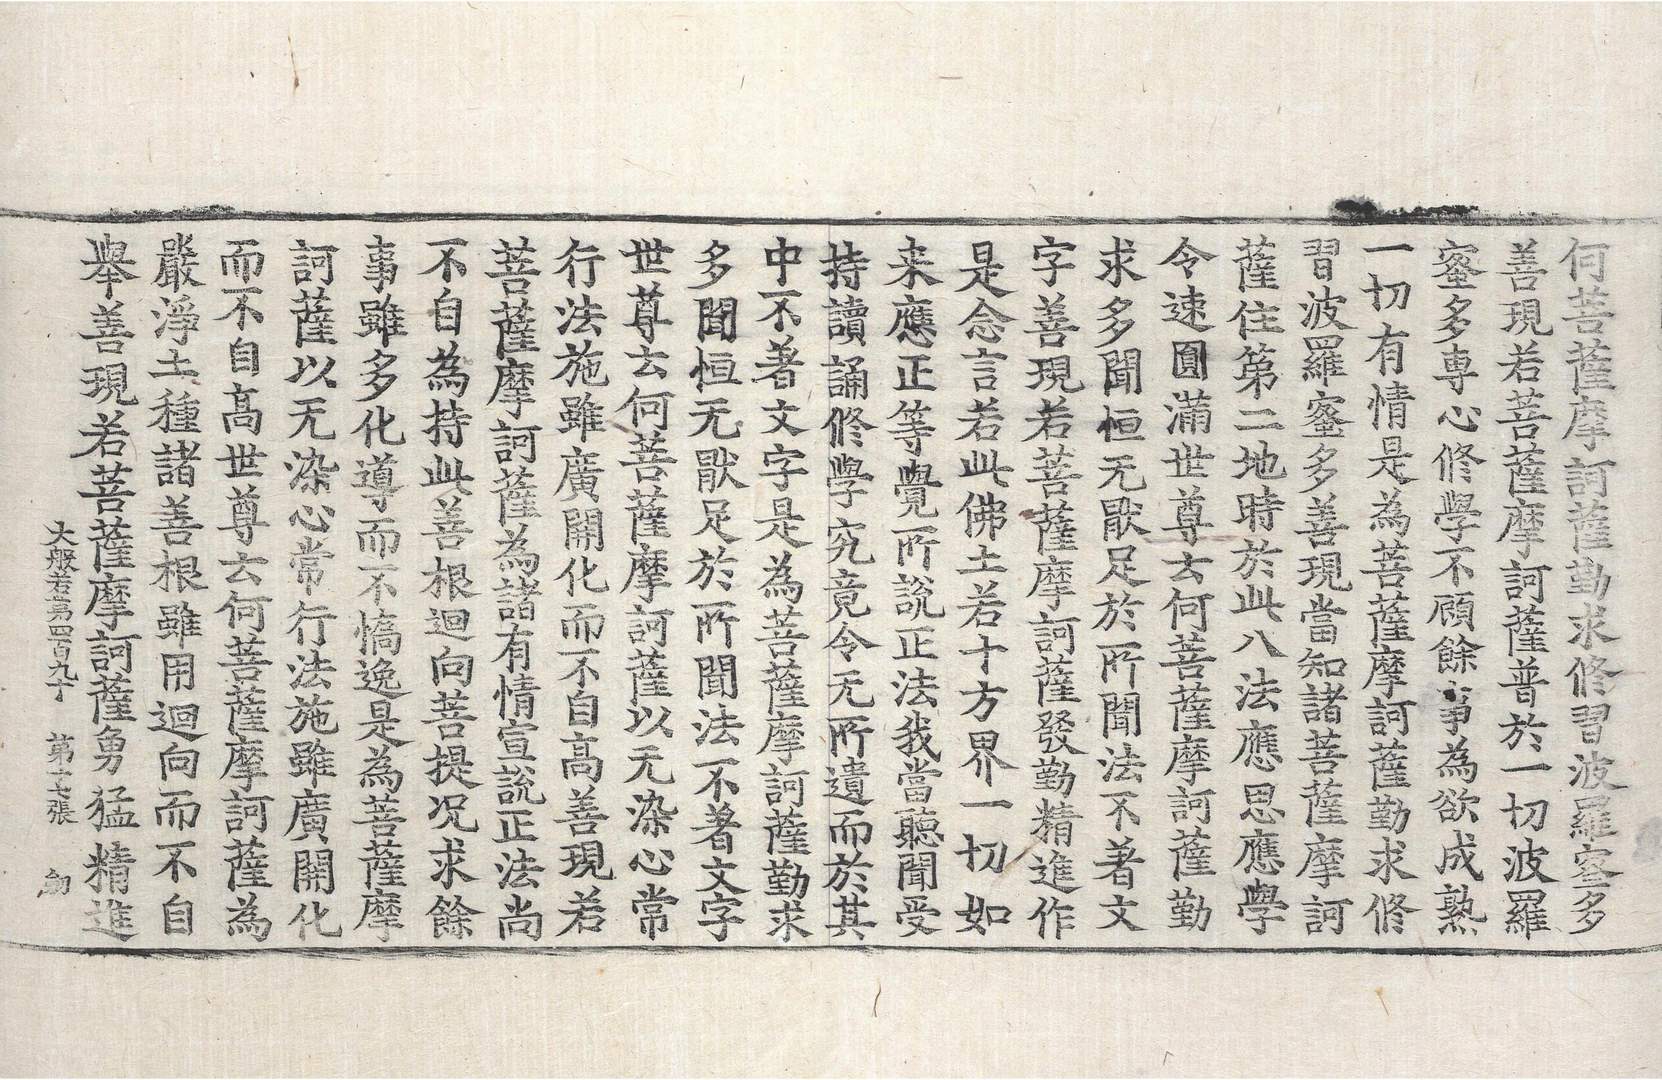 何菩薩摩訶薩勤求修習波羅蜜多
善現若菩薩摩訶薩普於一切波羅
蜜多專心修學不顧餘事為欲成熟
一切有情是為菩薩摩訶薩勤求修
習波羅蜜多善現當知諸菩薩摩訶
薩住第二地時於此八法應思應學
令速圓滿世尊云何菩薩摩訶薩勤
求多聞恒无猒足於所聞法不著文
字善現若菩薩摩訶薩發勤精進作
是念言若此佛土若十方界一切如
来應正等覺所說正法我當聽聞受
持讀誦修學究竟令无所遺而於其
中不著文字是為菩薩摩訶薩勤求
多聞恒无猒足於所聞法不著文字
世尊云何菩薩摩訶薩以无染心常
行法施雖廣開化而不自高善現若
菩薩摩訶薩為諸有情宣說正法尚
不自為持此善根迴向菩提况求餘
事雖多化導而不憍逸是為菩薩摩
訶薩以无染心常行法施雖廣開化
而不自高世尊云何菩薩摩訶薩為
嚴淨土種諸善根雖用迴向而不自
舉善現若菩薩摩訶薩勇猛精進
大般若第四百九十 第十七張